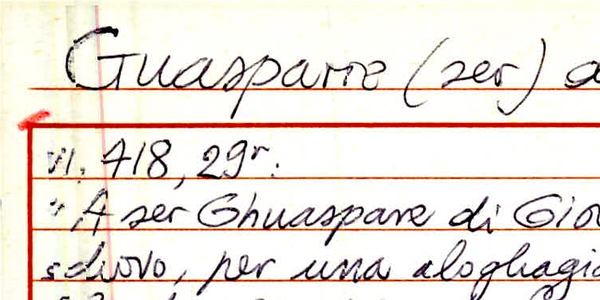 Guasparre (ser) d
VI, 418, 29r:
"A ser Ghuaspare di Gio
schovo, per una aloghagi